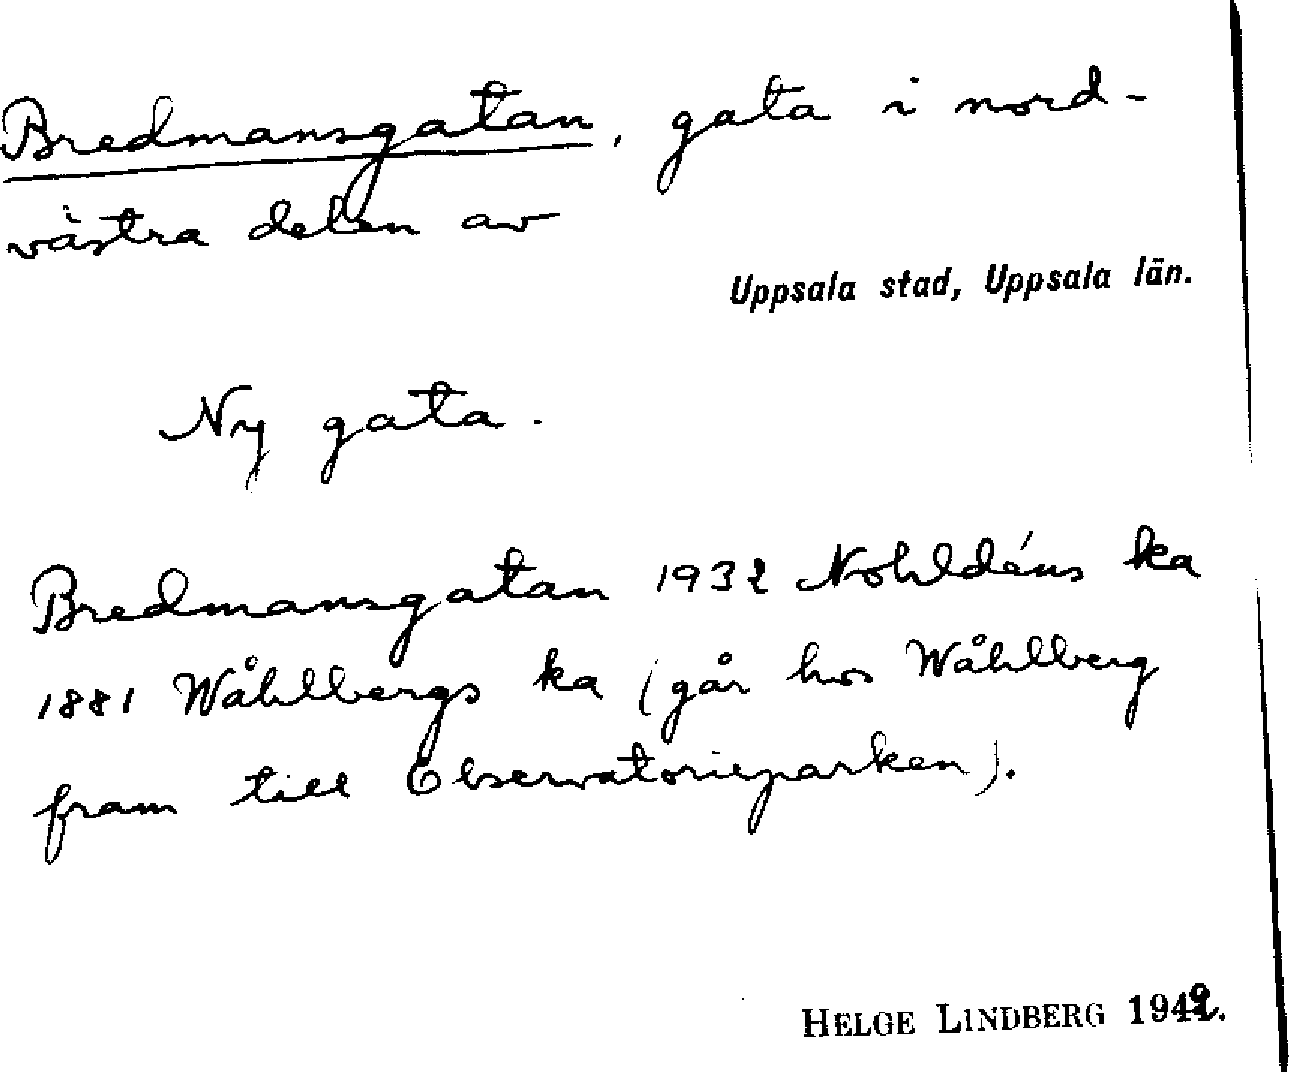 Bredmansgatan, gata i nord-
västra delen av
Uppsala stad, Uppsala län.
Ny gata.
Bredmansgatan 1932 Nohldéns ka
1881 Wåhlbergs ka (går hos Wåhlberg
fram till Observatorieparken).
HELGE LINDBERG 1942.